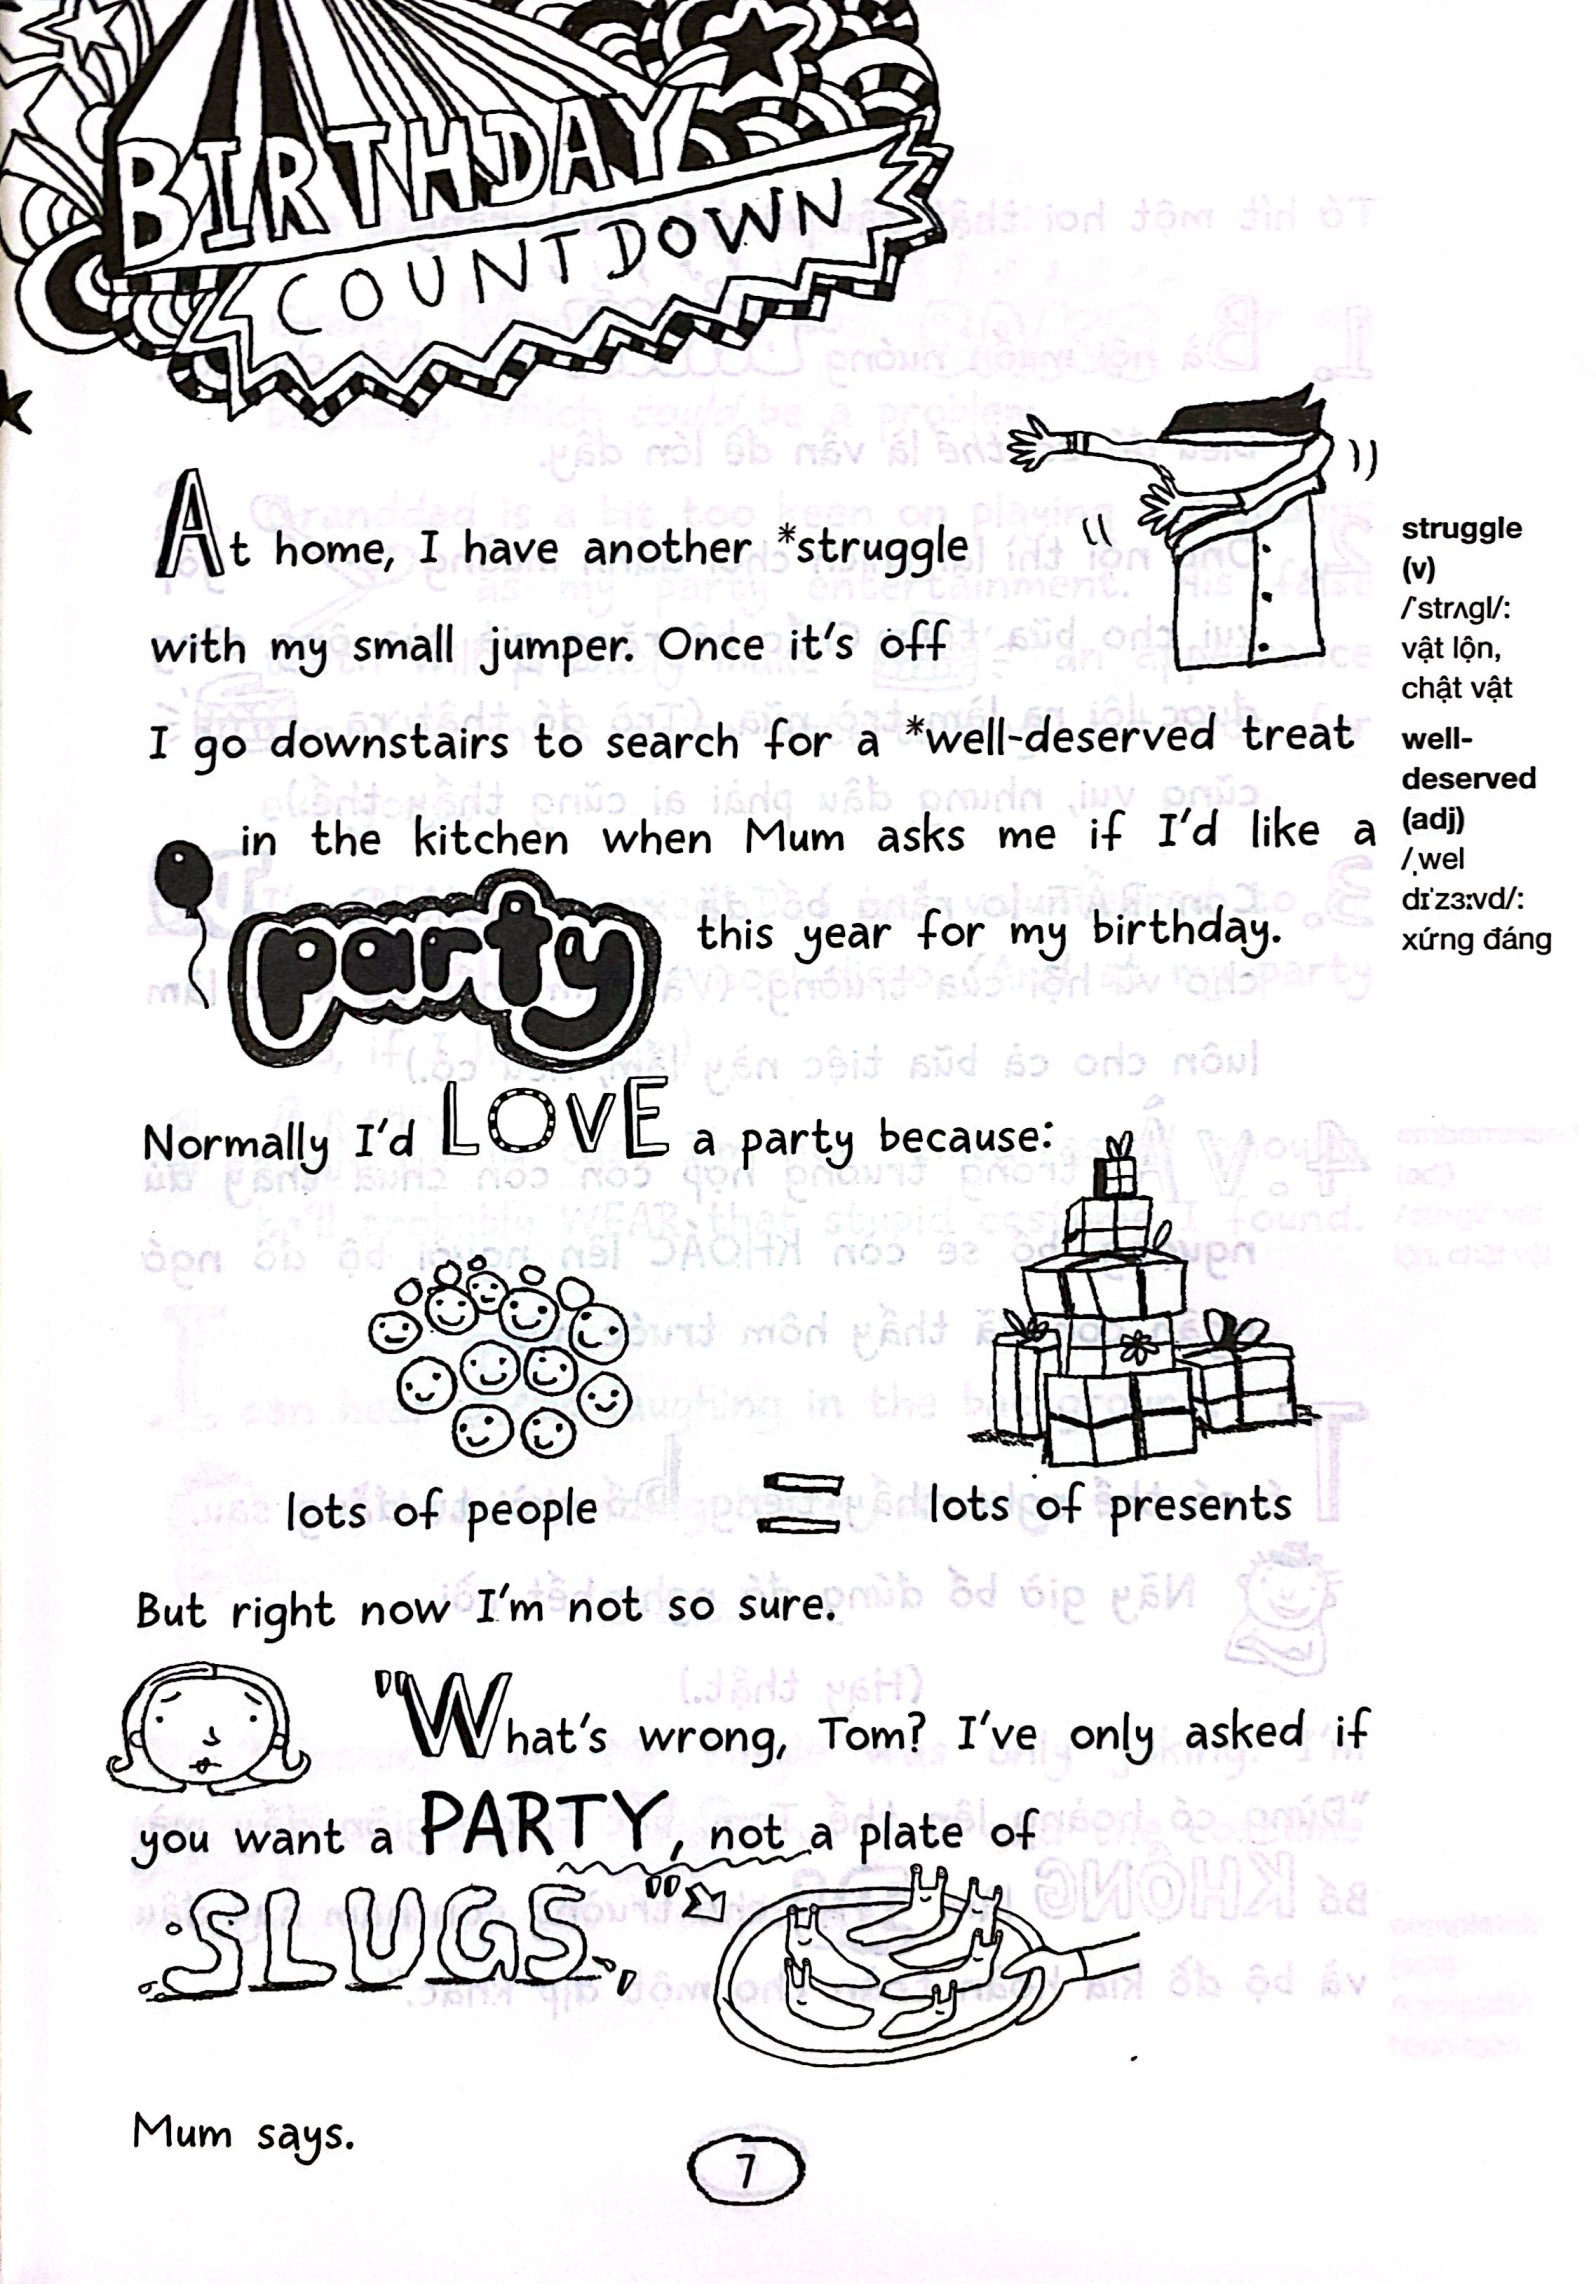 BIRTHDAY
COUNTDOWN
At home, I have another *struggle
with my small jumper. Once it's off
I go downstairs to search for a *well-deserved treat
in the kitchen when Mum asks me if I'd like a
party this year for my birthday.
Normally I'd LOVE a party because:
lots of people = lots of presents
But right now I'm not so sure.
"What's wrong, Tom? I've only asked if
you want a PARTY, not a plate of
SLUGS,"
Mum says.
7
struggle
(v)
/ˈstrʌgl/:
vật lộn,
chật vật
well-
deserved
(adj)
/ˌwel
dɪˈzɜːvd/:
xứng đáng